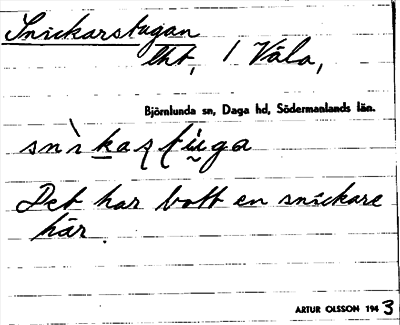 Snickarstugan
lht, / Väla,
Björnlunda sn, Daga hd, Södermanlands län.
snìkaṣtu̇ga
Det har bott en snickare
här.
ARTUR OLSSON 1943